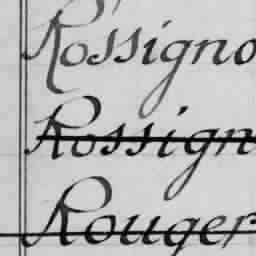 Rossigno
Rossign
Rouger